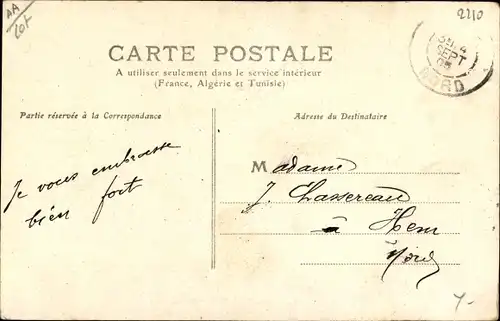 AA
lot
2210
CARTE POSTALE
A utiliser seulement dans le service intérieur
(France, Algérie et Tunisie)
SEPT
NORD
Partie réservée à la Correspondance
Adresse du Destinataire
Je vous embrasse
bien fort
Madame
J. Chassereau
à Hem
Nord